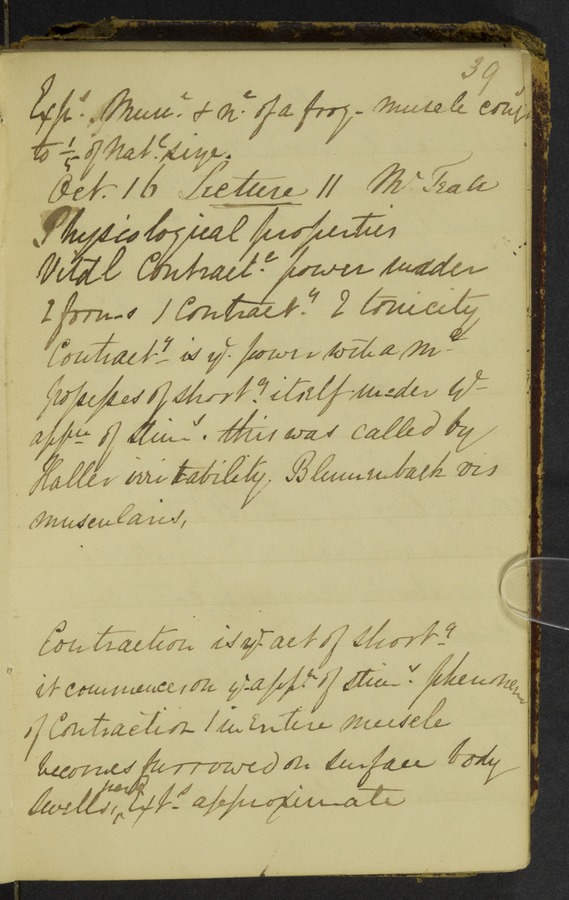 39
Expt. Musc. & n. of a frog - muscle cont
to 1/5 of nat. size.
Oct. 16 Lecture 11 Mr Teale
Physiological properties
Vital Contract.e power under
2 forms 1 Contract.y 2 tonicity
Contract.y is ye power with a Mc
possesses of short.g itself under ye
appn of stims. this was called by
Haller irritability, Blumenbach vis
muscularis,
Contraction is ye act of short.g
it commences on ye appn of stims. phenomen
of Contraction 1 in Entire muscle
becomes furrowed on surface body
swells, Exts approximate